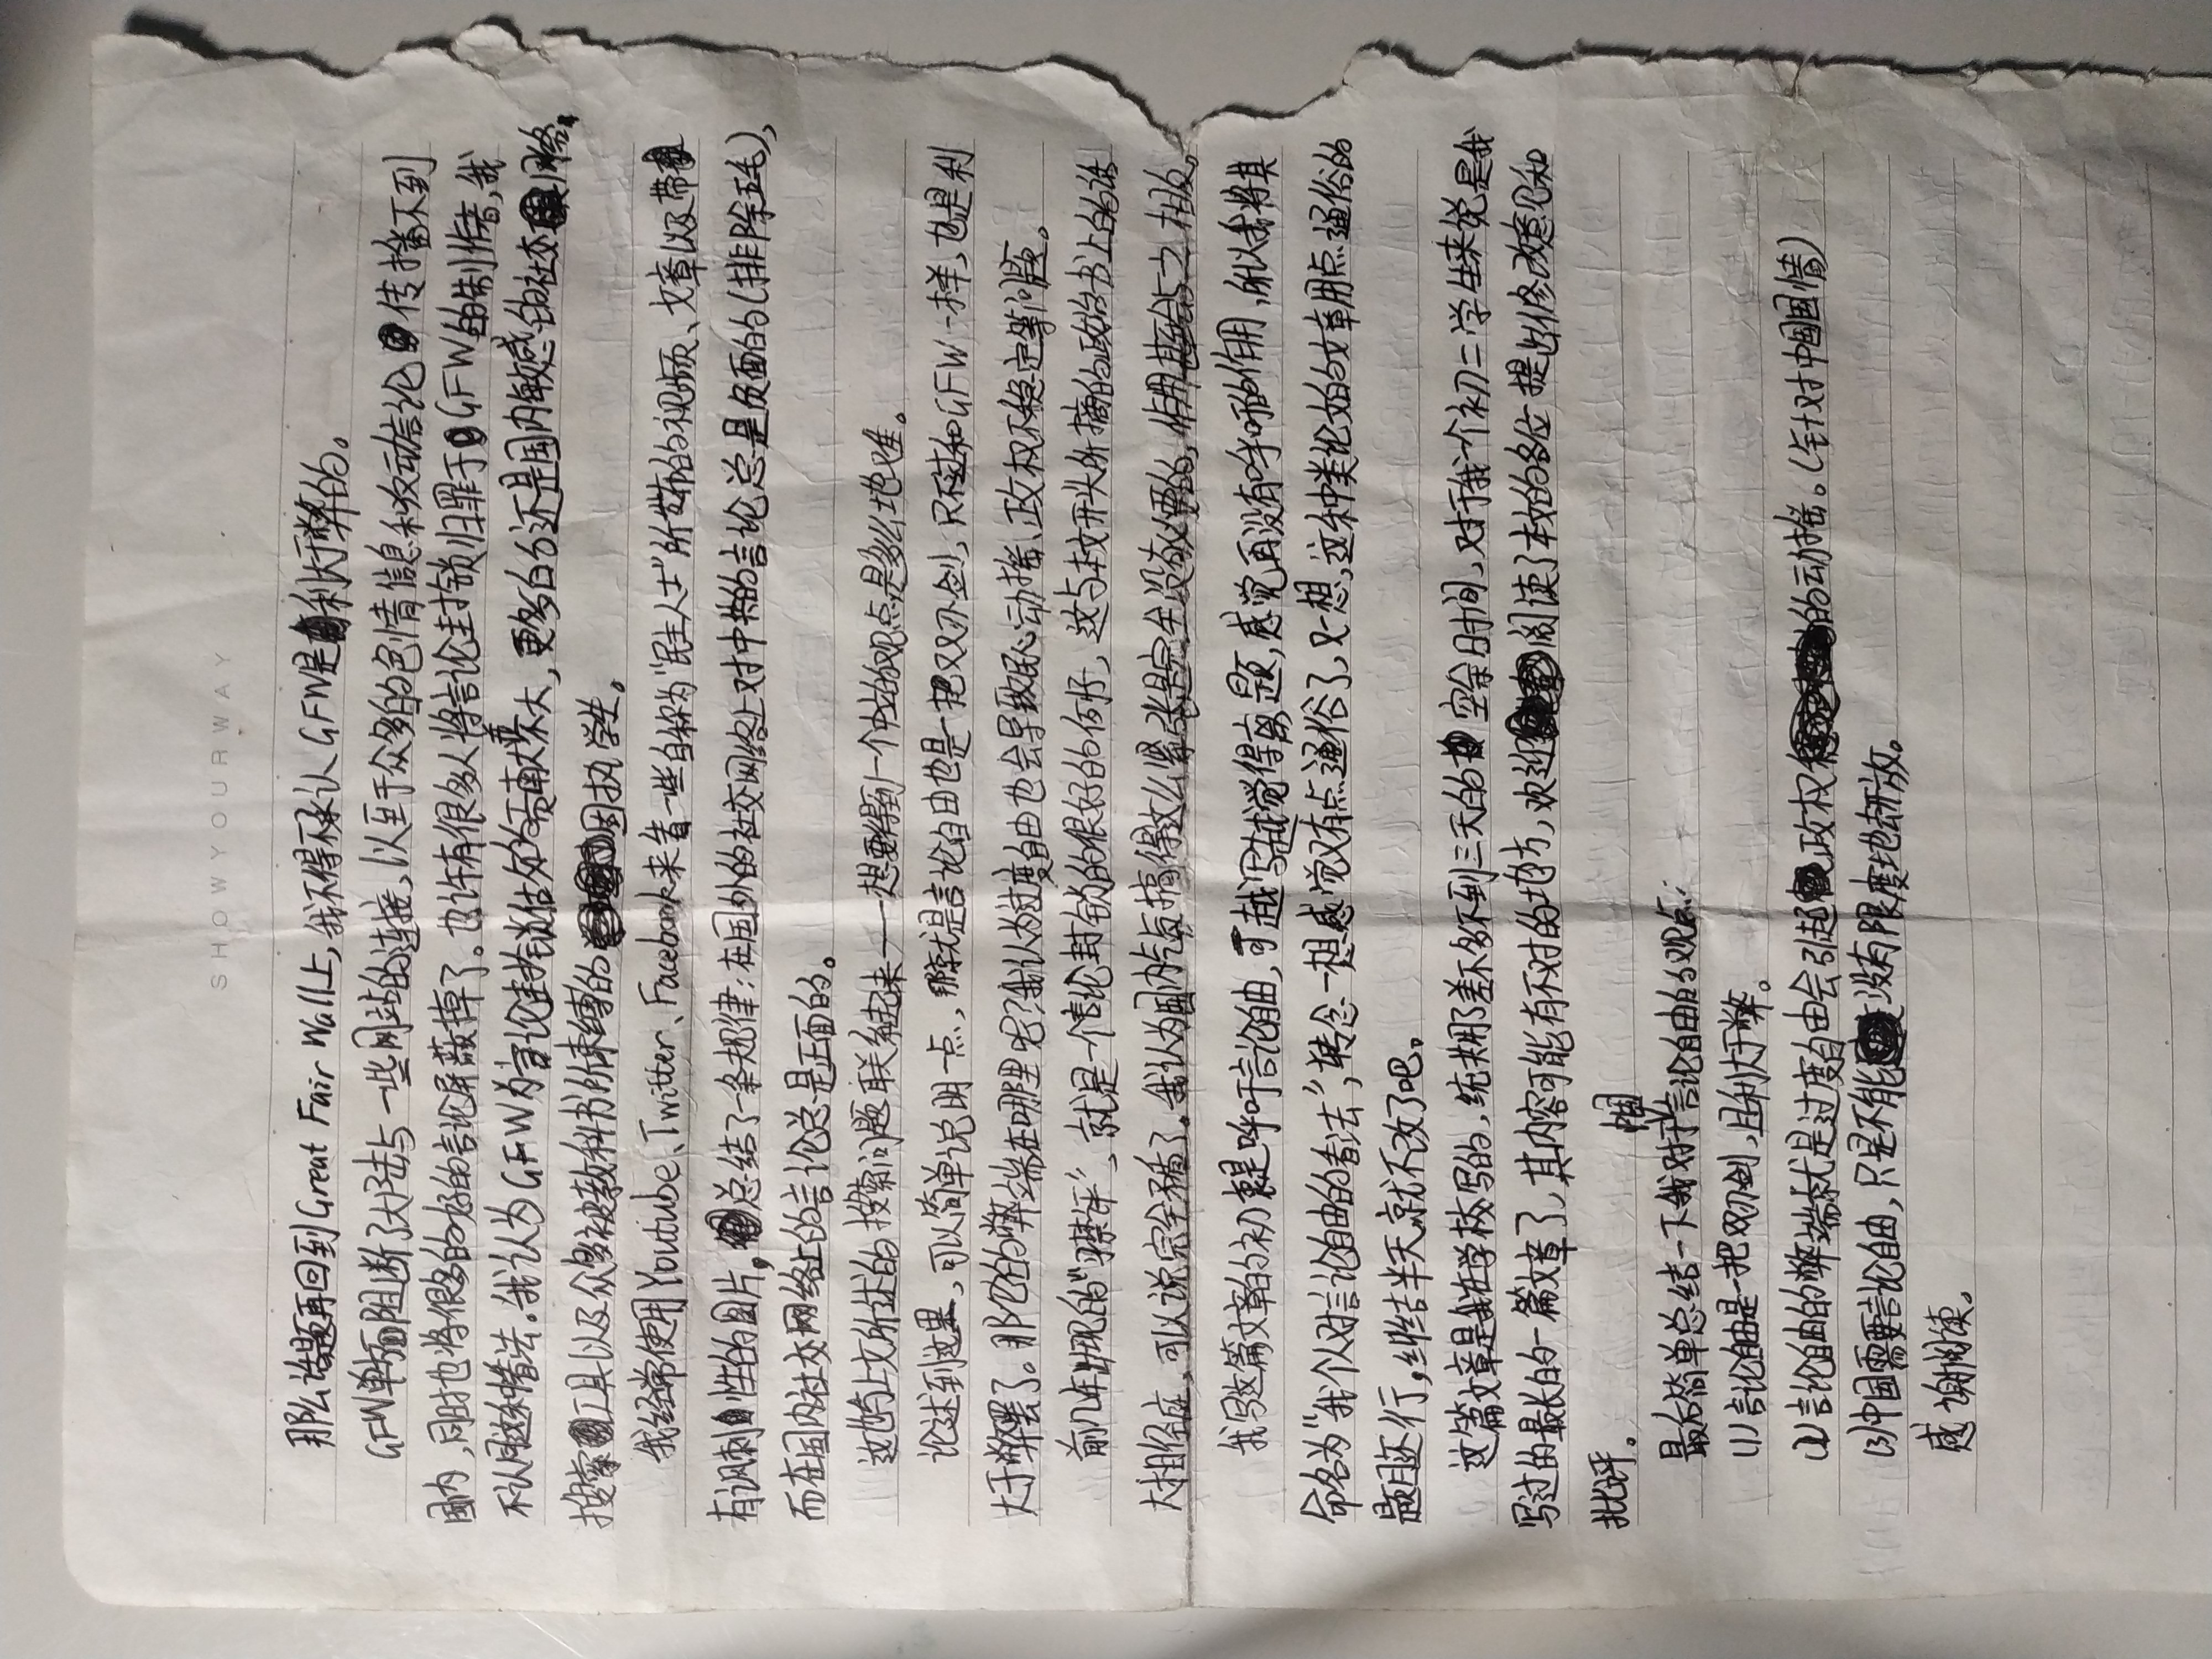 SHOWYOURWAY
那么话题再回到Great Fair Wall上，我不得不承认GFW是利大于弊的。
GFW单方面阻断了大陆与一些网站的连接，以至于众多的色情信息和反动言论传播不到
国内，同时也将很多的好的言论屏蔽掉了。也许有很多人将言论封锁归罪于GFW的制作者，我
不认同这种看法。我认为GFW为言论封锁做的贡献大并不大，更多的还是国内敏感的社交网络、
搜索工具以及众多被教科书所束缚的固执学生。
我经常使用Youtube、Twitter、Facebook来看一些自称为“民主人士”所发布的视频、文章以及带
有讽刺性的图片，总结了一条规律：在国外的社交网络上对中共的言论总是负面的（排除五毛），
而在国内社交网络上的言论总是正面的。
这也与上文所述的搜索问题联系起来——想要得到一个中立的观点是多么地难。
论述到这里，可以简单说明一点，那就是言论自由也是一把双刃剑，只不过和GFW一样，也是利
大于弊罢了。那它的弊端在哪里呢？我认为过度自由也会导致民心动摇、政权不稳定等问题。
前几年出现的“习禁评”，就是一个言论封锁的很好的例子，这与本文开头所摘的政治书上的话
大相径庭，可以说完全矛盾了。我认为国内气氛搞得这么紧张是完全没有必要的，作用甚至会与之相反。
我写这篇文章的初衷是呼吁言论自由，可越写越觉得离题，感觉再没有呼吁的作用，所以我将其
命名为“我个人对言论自由的看法”，转念一想感觉又有点通俗了，又一想，这种类论文的文章用点通俗的
题目还行，纠结半天就不改了吧。
这篇文章是我在学校写的，统共用了差不多不到三天的空余时间，对于我一个初二学生来说是我
写过的最长的一篇文章了，其内容可能有不对的地方，欢迎阅读了本文的各位提出修改意见和
批评。
最后简单总结一下我对于中国言论自由的观点：
(1)言论自由是一把双刃剑，且利大于弊。
(2)言论自由的弊端就是过度自由会引起政权的动摇。（针对中国国情）
(3)中国需要言论自由，只是不能没有限度地去开放。
感谢阅读。